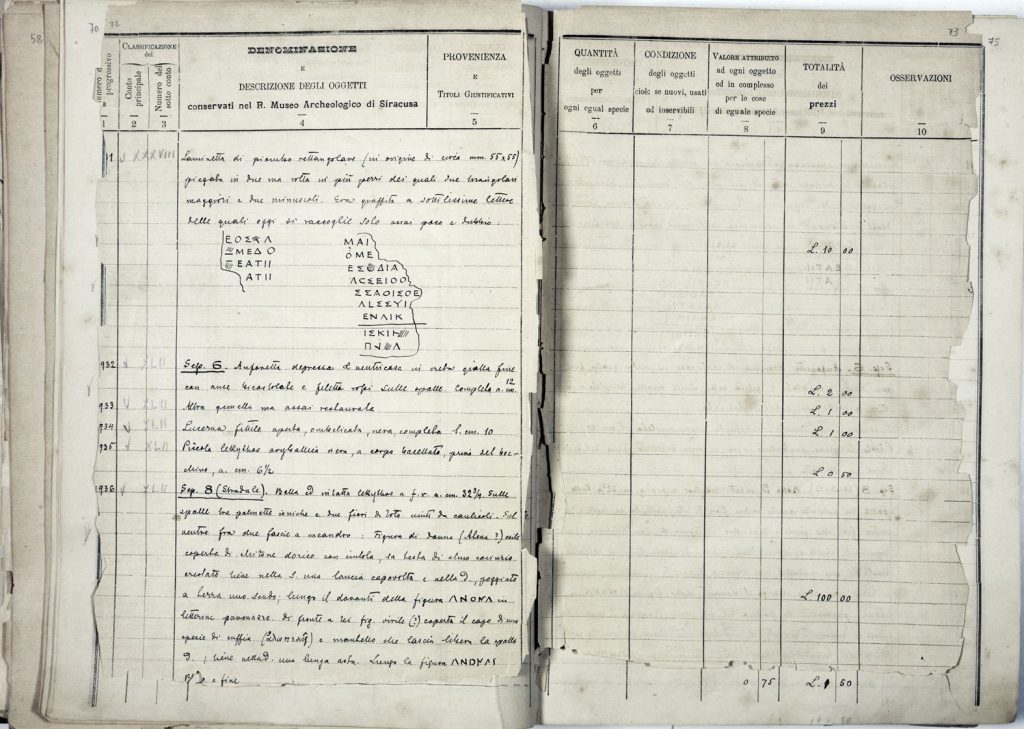 58
70
72
Numero d'
progressivo
1
CLASSIFICAZIONE
del
Conto
principale
2
Numero del
sotto conto
3
DENOMINAZIONE
E
DESCRIZIONE DEGLI OGGETTI
conservati nel R. Museo Archeologico di Siracusa
4
PROVENIENZA
E
TITOLI GIUSTIFICATIVI
5
Laminetta di piombo rettangolare (in origine di circa mm. 55x55)
piegata in due ma rotta in più pezzi dei quali due
maggiori e due minuscoli. Era graffita a sottilissime lettere
delle quali oggi si raccoglie solo assai poco e dubbio:
ΜΕΔΟ
ΕΑΤΙΙ
ΑΤΙΙ
ΜΑΙ
ΟΜΕ
ΕΝΛΙΚ
932
Sep. 6. Anfonetta depressa e ventricosa in creta gialla fine
con anse e filetti rossi sulle spalle. Completa a. cm. 12
933 Altra gemella ma assai restaurata
934 Lucerna fittile aperta, ombelicata, nera, completa l. cm. 10
935 Piccola lekythos aryballica nera, a corpo baccellato, priva del boc-
chino, a. cm. 6½
1936
Sep. 8 (Stradale). Bella ed intatta lekythos a f. r. a. cm. 32¾. Sulle
spalle tre palmette ioniche e due fiori di loto uniti da caulicoli. Sul
ventre fra due fascie a meandro: Figura di donna (Atena?)
coperta di chitone dorico con cintola, la testa di elmo corinzio
crestato tiene nella s. una lancia capovolta e nella d. poggiato
a terra uno scudo; lungo il davanti della figura ΑΝΟΚΛ in
letterine paonazze. Di fronte a lei fig. virile (?) coperta il capo di una
specie di cuffia e mantello che lascia libera la spalla
d.; tiene nella d. una lunga asta. Lungo la figura
e fine
73
75
QUANTITÀ
degli oggetti
per
ogni egual specie
6
CONDIZIONE
degli oggetti
cioè: se nuovi, usati
od inservibili
7
VALORE ATTRIBUTO
ad ogni oggetto
ed in complesso
per le cose
di eguale specie
8
TOTALITÀ
dei
prezzi
9
OSSERVAZIONI
10
L. 10 00
L. 2 00
L. 1 00
L. 1 00
L. 0 50
L. 100 00
0 75 L. 1 50